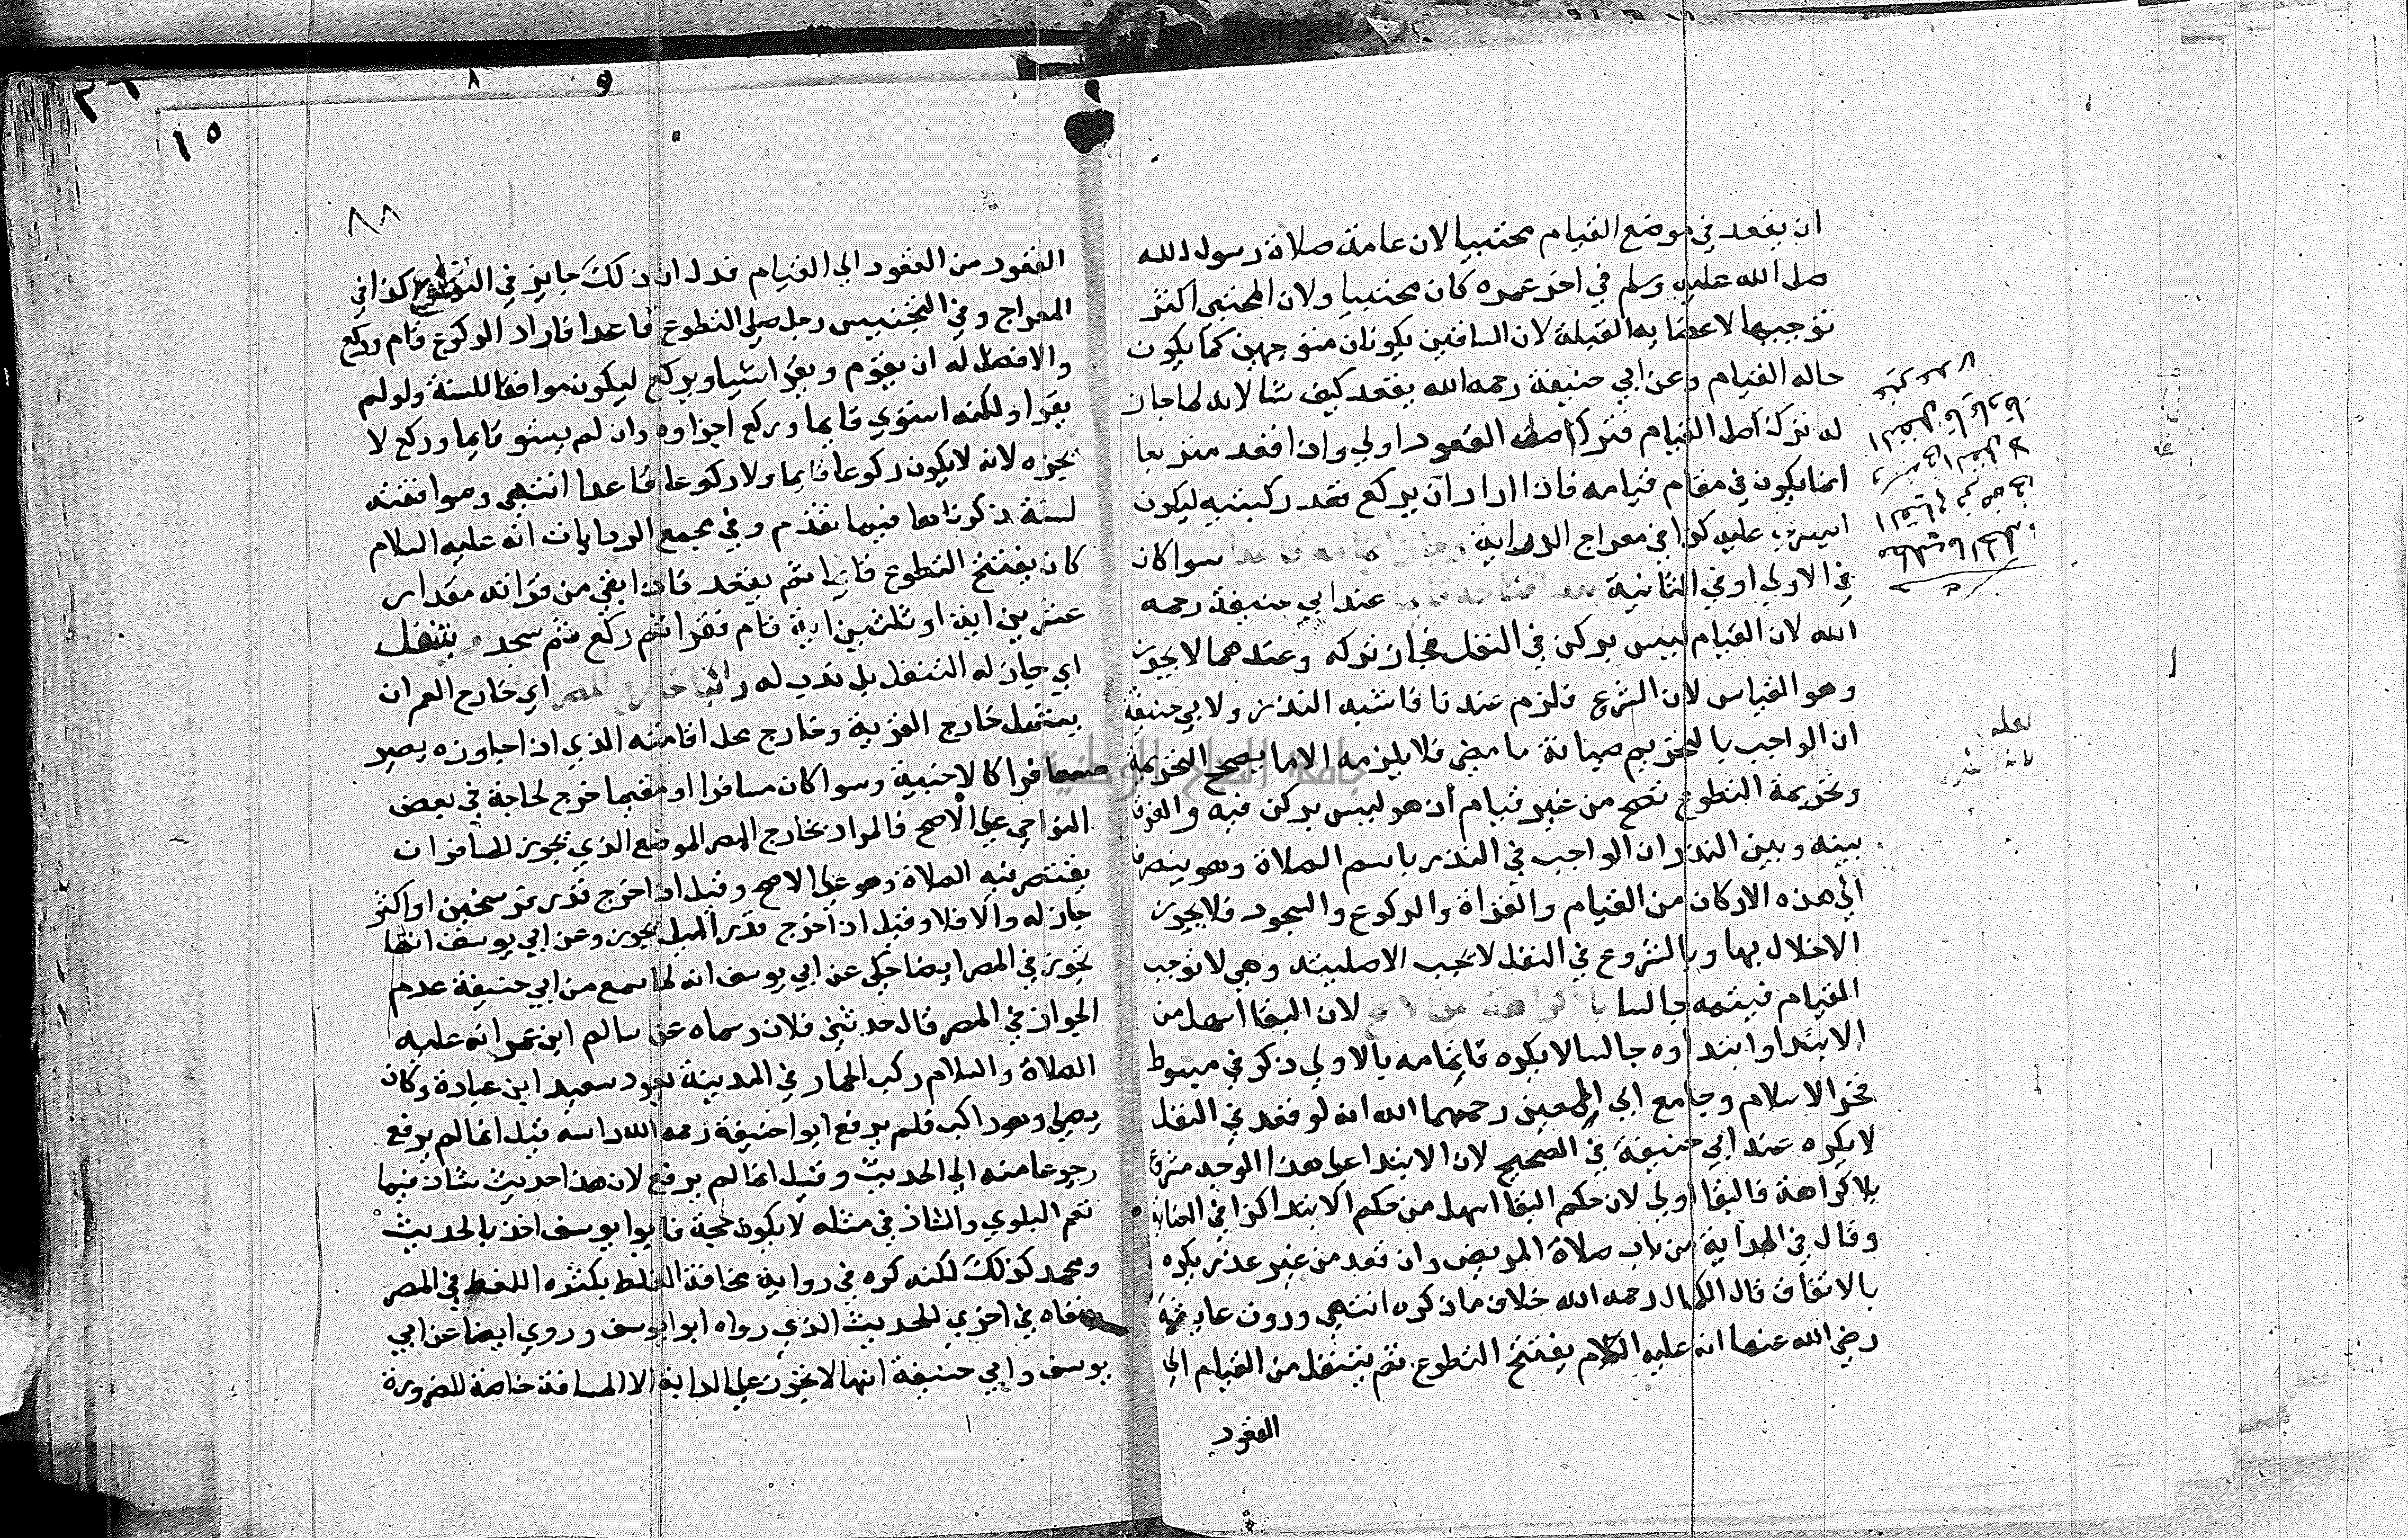 ان يقعد في موضع القيام محتبيا لان عامة صلاة رسول الله
صلى الله عليه وسلم في اخر عمره كان محتبيا ولان المحتبى اكثر
توجيها لاعضايه القبلة لان الساقين يكونان متوجهين كما يكون
حاله القيام وعن ابي حنيفة رحمه الله يقعد كيف شا لانه لما جاز
له ترك اصل القيام فترك صفة القعود اولي واذا قعد متربعا
انما يكون في مقام قيامه فاذا اراد ان يركع يقعد ركبتيه ليكون
ايسر عليه كذا في معراج الدراية وجاز اتمامه قاعدا سوا كان
في الاولي او في الثانية بعد افتتاحه قايما عند ابي حنيفة رحمه
الله لان القيام ليس بركن في النفل فجاز تركه وعندهما لا يجوز
وهو القياس لان الشرع فلزم عندنا فاشبه النذر ولابي حنيفة
ان الواجب بالتحريم صيانة ما مضي فلا يلزمه الا ما يصحح التحريمة
وتحريمة التطوع تصح من غير قيام اذ هو ليس بركن فيه والفرق
بينه وبين النذر ان الواجب في النذر باسم الصلاة وهو ينصرف
الي هذه الاركان من القيام والقراة والركوع والسجود فلا يجوز
الاخلال بها وبالشروع في النفل لا تجب الاصلية وهي لا توجب
القيام فيتمه جالسا بلا كراهة على الاصح لان البقا اسهل من
الابتدا وابتداوه جالسا لا يكره فاتمامه بالاولي ذكر في مبسوط
فخر الاسلام وجامع ابي المعين رحمهما الله انه لو قعد في النفل
لا يكره عند ابي حنيفة في الصحيح لان الابتدا على هذا الوجه مشروع
بلا كراهة فالبقا اولي لان حكم البقا اسهل من حكم الابتدا كذا في العناية
وقال في الهداية من باب صلاة المريض وان قعد من غير عذر يكره
بالاتفاق قال الكمال رحمه الله خلاف ما ذكره انتهي وروت عايشة
رضي الله عنها انه عليه السلام يفتتح التطوع ثم ينتقل من القيام الي
القعود
لعله
١٥
٨٨
القعود من القعود الي القيام فدل ان ذلك جايز في التطوع كذا في
المعراج وفي التجنيس رجل صلي التطوع قاعدا فاراد الركوع قام وركع
والافضل له ان يقوم ويقرا شيا ويركع ليكون موافقا للسنة ولو لم
يقرا ولكنه استوي قايما وركع اجزاوه وان لم يستو قايما وركع لا
يجزه لانه لا يكون ركوعا قايما ولا ركوعا قاعدا انتهي وموافقته
لسنة ذكرناها فيما تقدم وفي مجمع الروايات انه عليه السلام
كان يفتتح التطوع قايما ثم يقعد فاذا بقي من قراته مقدار
عشرين اية او ثلثين اية قام فقرا ثم ركع ثم سجد ويتنفل
اي جاز له التنفل بل ندب له راكبا خارج المصر اي خارج العمران
يشمل خارج القرية وخارج محل اقامته الذي اذا جاوزه يصير
مسافرا كالاخبية وسوا كان مسافرا او مقيما خرج لحاجة في بعض
النواحي علي الاصح فالمراد بخارج المصر الموضع الذي يجوز للمسافر ان
يقتصر فيه الصلاة وهو علي الاصح وقيل اذا خرج قدر فرسخين او اكثر
جاز له والا فلا وقيل اذا خرج قدر الميل يجوز وعن ابي يوسف انها
تجوز في المصر ايضا حكي عن ابي يوسف انه لما سمع من ابي حنيفة عدم
الجواز في المصر قال حدثني فلان وسماه عن سالم ابن عمر انه عليه
الصلاة والسلام ركب الحمار في المدينة يعود سعيد ابن عبادة وكان
يصلي وهو راكب فلم يرفع ابوا حنيفة رحمه الله راسه قيل انما لم يرفع
رجوعا منه الي الحديث وقيل انما لم يرفع لان هذا حديث شاذ فيما
تعم البلوي والشاذ في مثله لا يكون حجة فابوا يوسف اخذ بالحديث
ومحمد كذلك لكنه كره في رواية مخافة الغلط بكثره اللغط في المصر
ونفاه في اخري للحديث الذي رواه ابوا يوسف وروي ايضا عن ابي
يوسف وابي حنيفة انها لا تجوز علي الدابة الا لمسافة خاصة للضرورة